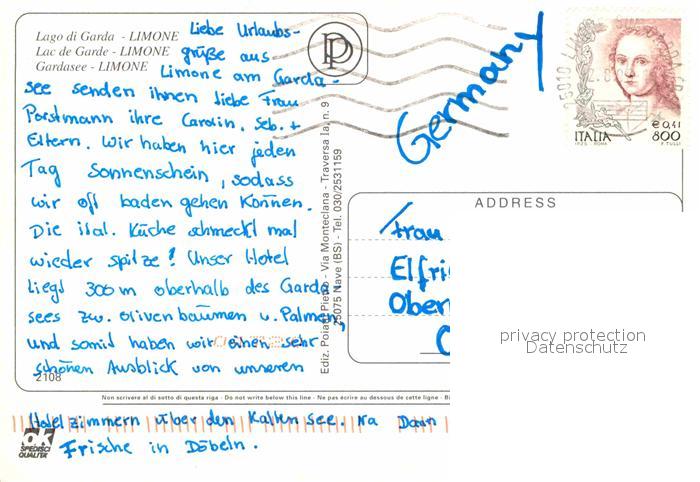 Lago di Garda - LIMONE
Lac de Garde - LIMONE
Gardasee - LIMONE
Liebe Urlaubs-
grüße aus
Limone am Garda-
see senden ihnen liebe Frau
Porstmann ihre Carolin, Seb. +
Eltern. Wir haben hier jeden
Tag Sonnenschein, sodass
wir oft baden gehen können.
Die ital. Küche schmeckt mal
wieder spitze! Unser Hotel
liegt 300m oberhalb des Garda
sees zw. Olivenbäumen u. Palmen,
und somit haben wir einen sehr
schönen Ausblick von unseren
2108
Hotelzimmern über den Kalten See. Na Dann
Frische in Döbeln.
ok
SPEDISCI
QUALITA'
Non scrivere al di sotto di questa riga - Do not write below this line - Ne pas écrire au dessous de cette ligne - Bi
Ediz. Poiatti Pietro - Via Monteclana - Traversa Ia, n. 9
25075 Nave (BS) - Tel. 030/2531159
P
Germany
ITALIA
€ 0,41
800
I.P.Z.S. - ROMA
F. TULLI
25010 LI
ADDRESS
Frau
Elfri
Ober
privacy protection
Datenschutz